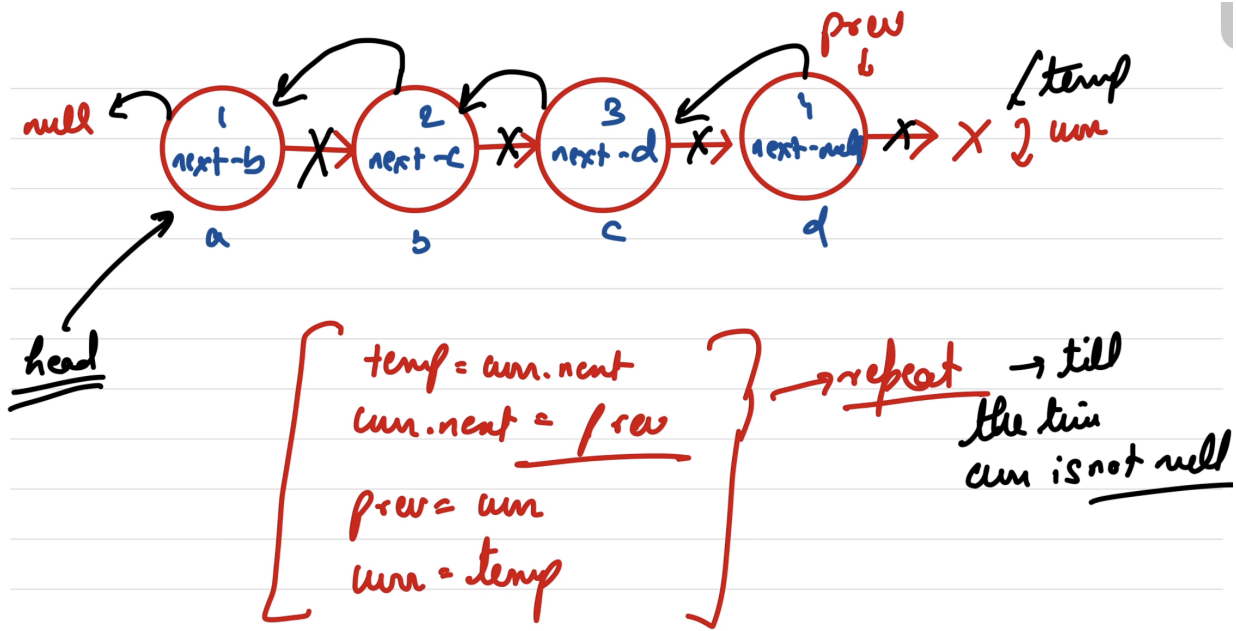 prev
temp
null
1
2
3
4
curr
next-b
next-c
next-d
next-null
a
b
c
d
head
temp = curr.next
curr.next = prev
prev = curr
curr = temp
→ repeat → till
the time
curr is not null